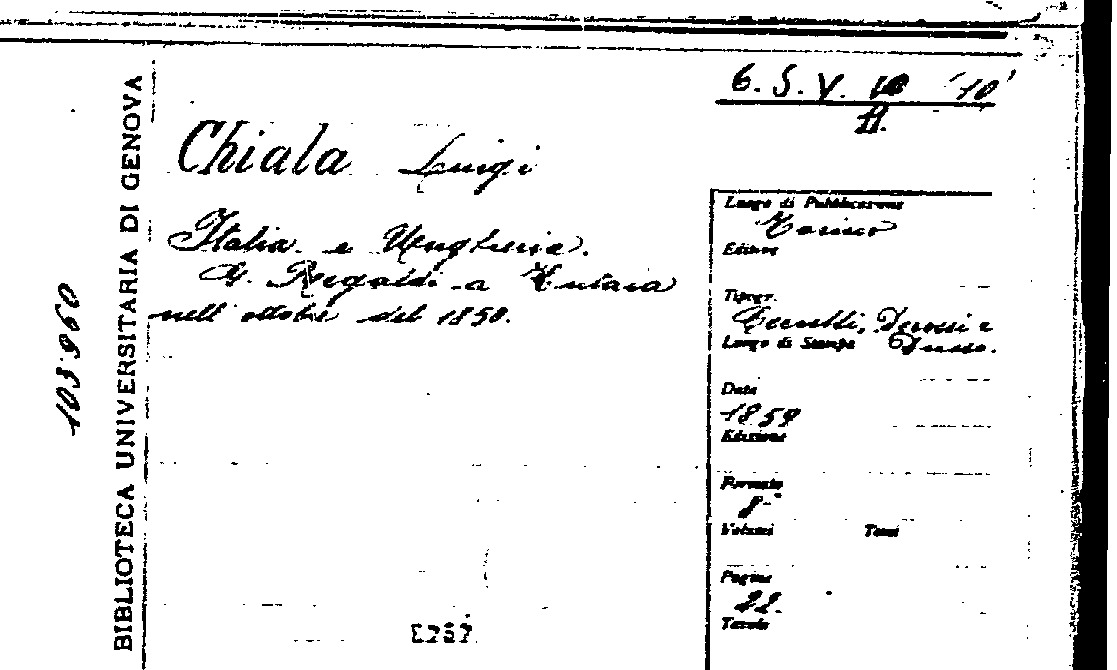 6. S. V. 10 '10'
11.
Chiala Luigi
Italia e Ungheria.
G. Regaldi a Kutaia
nell' ottobre del 1850.
Luogo di Pubblicazione
Torino
Editore
Tipogr.
Cerutti, Derossi e
Dusso.
Luogo di Stampa
Data
1859
Edizione
Formato
8°
Volumi Tomi
Pagine
22.
Tavole
BIBLIOTECA UNIVERSITARIA DI GENOVA
103960